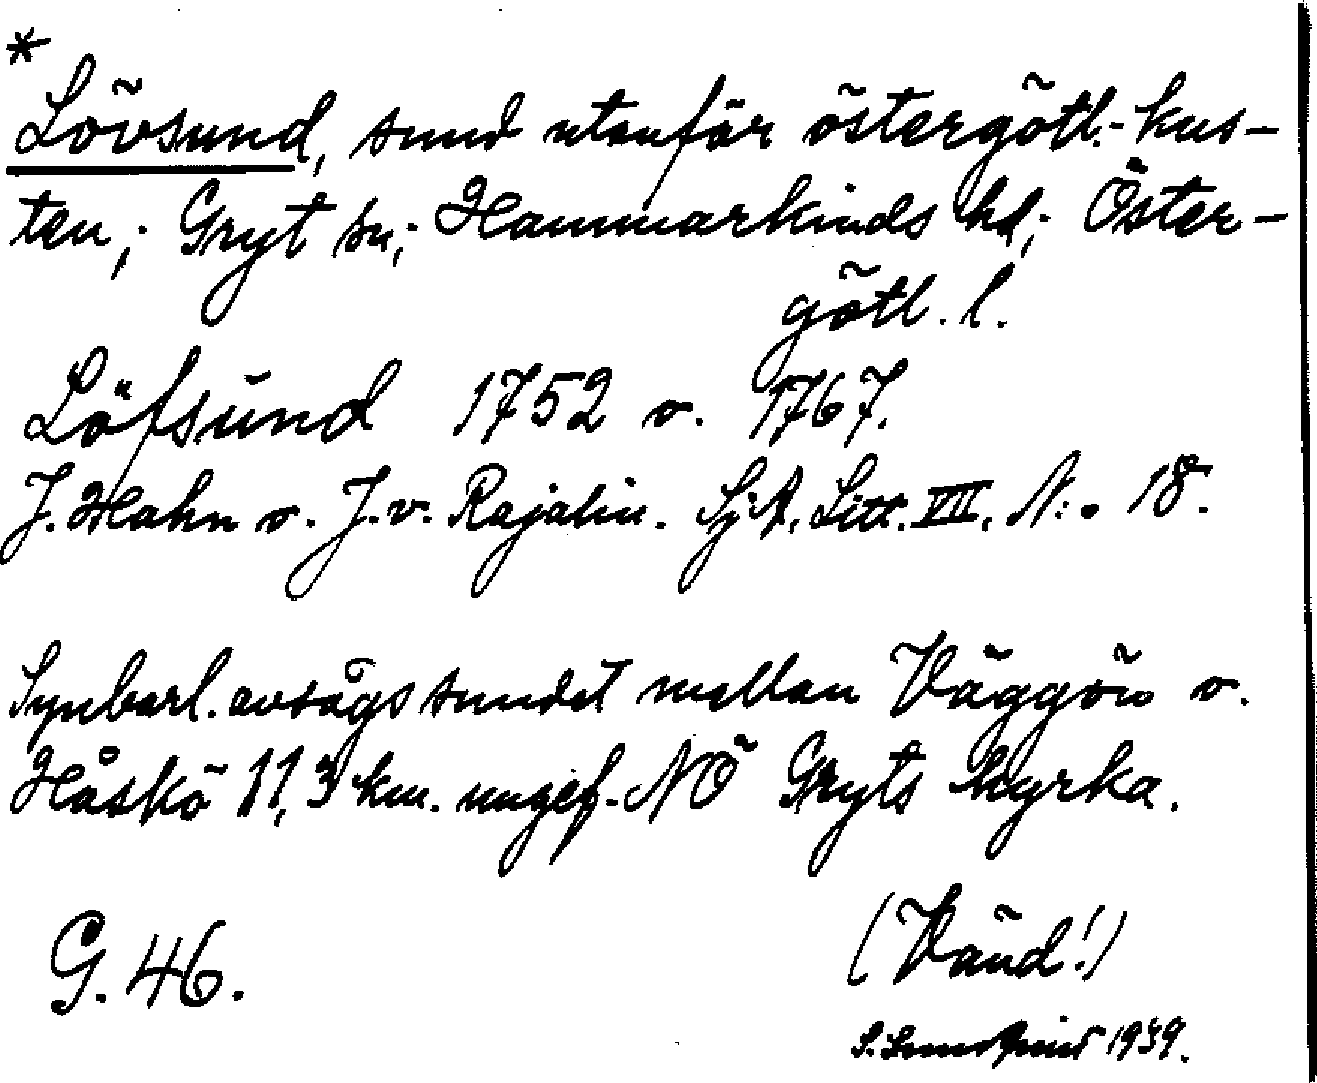 *
Lövsund, sund utanför östergötl.-kus-
ten; Gryt sn; Hammarkinds hd; Öster-
götl. l.
Löfsŭnd 1752 o. 1767.
J. Hahn o. J. v. Rajalin. Sj.A. Litt. VII. N:o 18.
Synbarl. avsågs sundet mellan Väggön o.
Håskö 11,3 km. ungef. NÖ Gryts kyrka.
(Vänd!)
G. 46.
S. Sundqvist 1939.